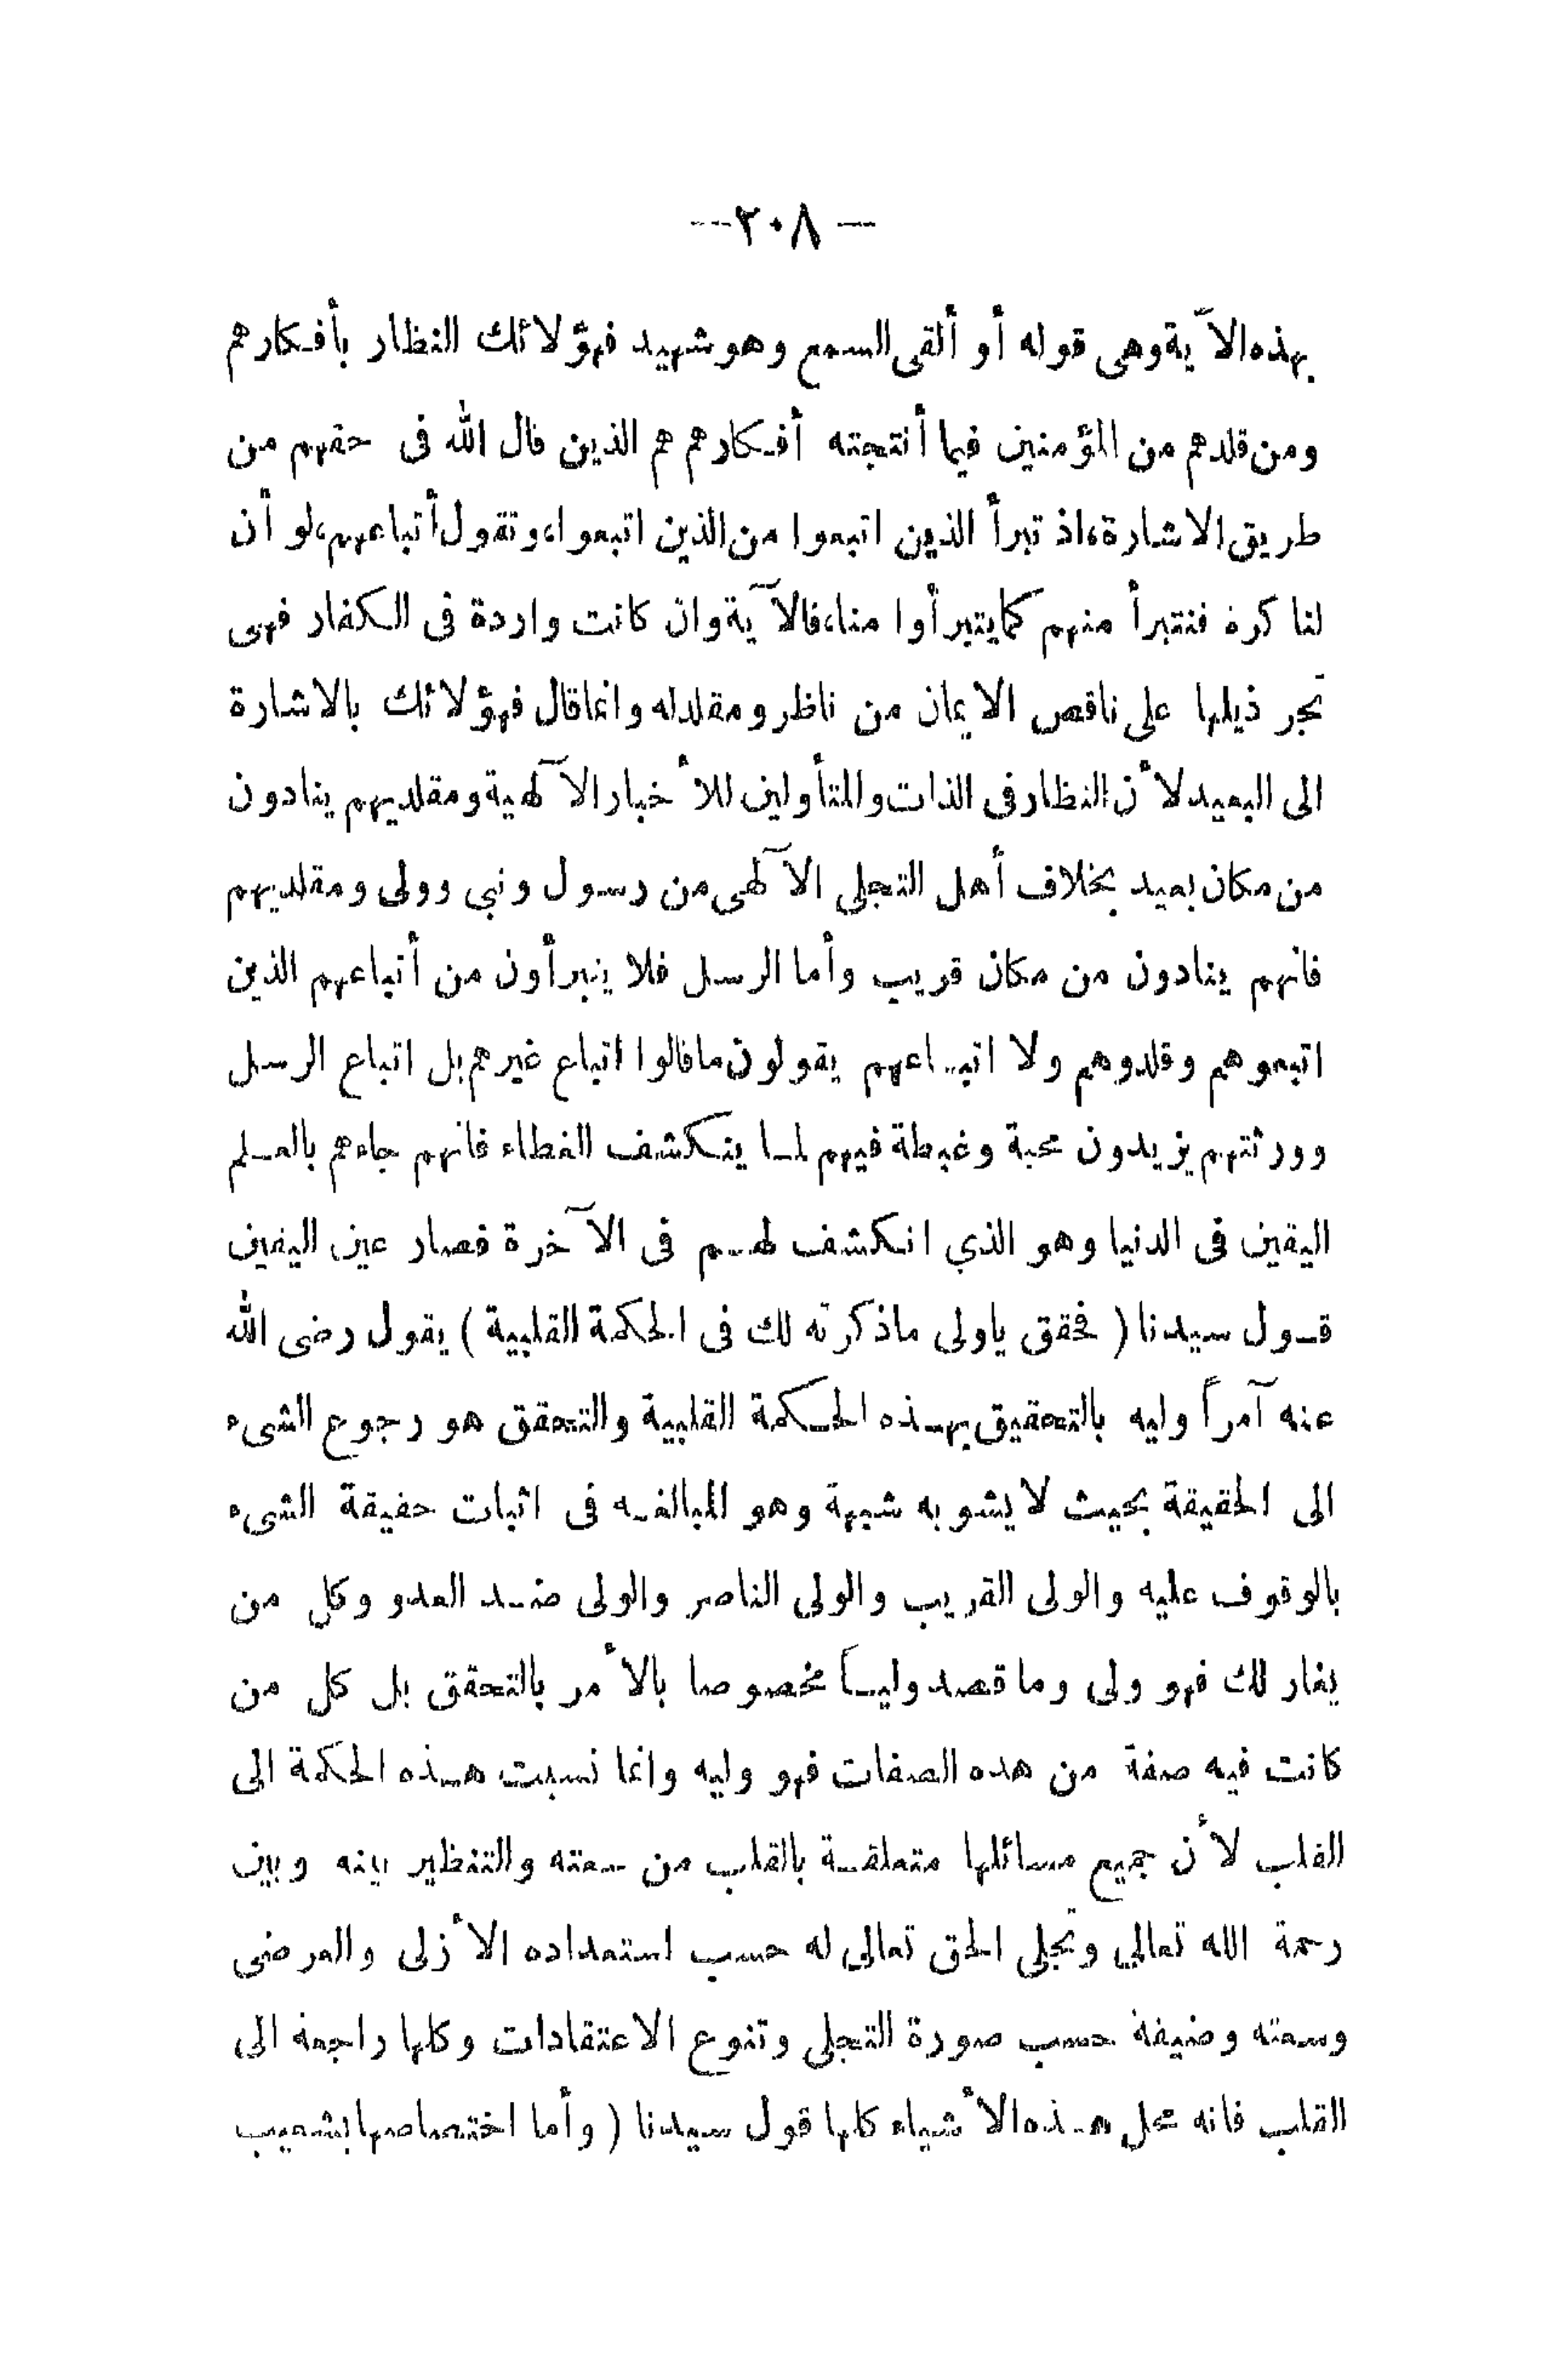 — ٢٠٨ —
بهذه الآية وهى قوله أو ألقى السمع وهو شهيد فهؤلائك النظار بأفكارهم
ومن قلدهم من المؤمنين فيما أنتجته أفكارهم هم الذين قال الله فى حقهم من
طريق الاشارة، اذ تبرأ الذين اتبعوا من الذين اتبعوا، وتقول أتباعهم، لو أن
لنا كرة فنتبرأ منهم كما يتبرأوا منا، فالآية وان كانت واردة فى الكفار فهى
تجر ذيلها على ناقص الايمان من ناظر ومقلد له وانما قال فهؤلائك بالاشارة
الى البعيد لأن النظار فى الذات والمتأولين للأخبار الآلهية ومقلديهم ينادون
من مكان بعيد بخلاف أهل التجلى الآلهى من رسول ونبي وولى ومقلديهم
فانهم ينادون من مكان قريب وأما الرسل فلا يتبرأون من أتباعهم الذين
اتبعوهم وقلدوهم ولا اتباعهم يقولون ما قالوا اتباع غيرهم بل اتباع الرسل
وورثتهم يزيدون محبة وغبطة فيهم لما ينكشف الغطاء فانهم جاءهم بالعلم
اليقين فى الدنيا وهو الذي انكشف لهم فى الآخرة فصار عين اليقين
قول سيدنا ( فحقق ياولى ماذكرته لك فى الحكمة القلبية ) يقول رضى الله
عنه آمراً وليه بالتحقيق بهذه الحكمة القلبية والتحقق هو رجوع الشىء
الى الحقيقة بحيث لا يشوبه شبهة وهو المبالغه فى اثبات حقيقة الشىء
بالوقوف عليه والولى القريب والولى الناصر والولى ضد العدو وكل من
يغار لك فهو ولى وما قصد وليا مخصوصا بالأمر بالتحقق بل كل من
كانت فيه صفة من هده الصفات فهو وليه وانما نسبت هذه الحكمة الى
القلب لأن جميع مسائلها متعلقة بالقلب من سعته والتنظير بينه وبين
رحمة الله تعالي وتجلى الحق تعالى له حسب استعداده الأزلى والعرضى
وسعته وضيقه حسب صورة التجلى وتنوع الاعتقادات وكلها راجعة الى
القلب فانه محل هذه الأشياء كلها قول سيدنا ( وأما اختصاصها بشعيب